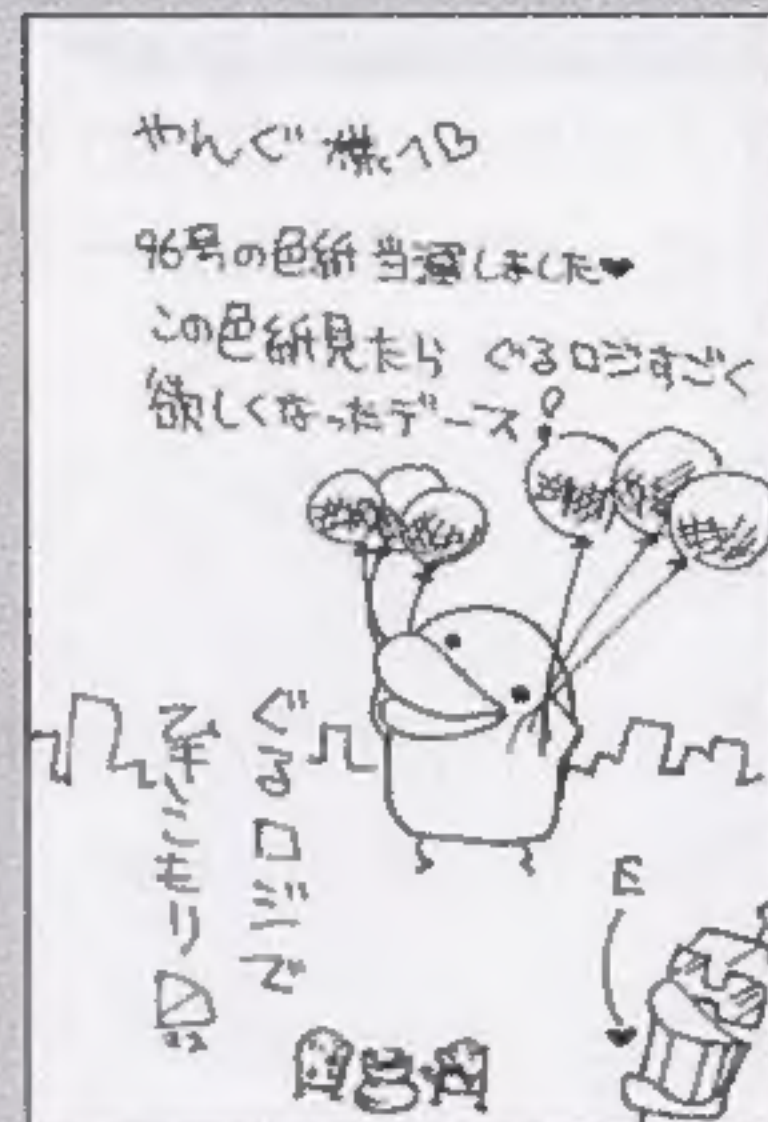 やんぐ様へ♡
96号の色紙当選しました♥
この色紙見たら ぐるロジすごく
欲しくなったデース!
ぐるロジで
E